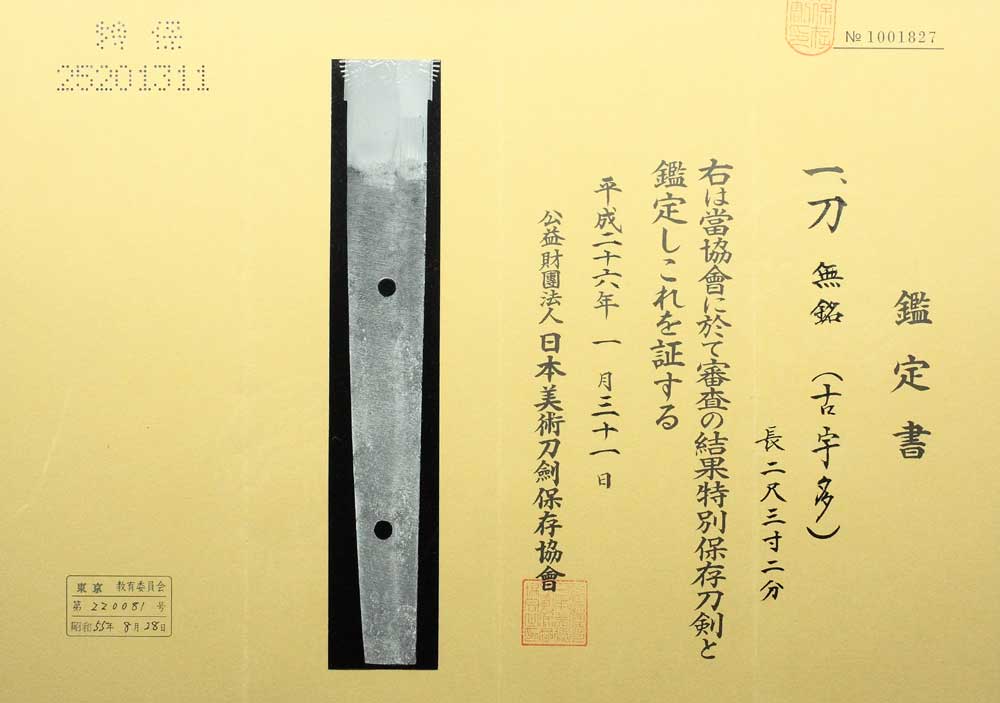 № 1001827
鑑定書
一、刀 無銘 (古宇多)
長二尺三寸二分
右は當協會に於て審査の結果特別保存刀剣と
鑑定しこれを証する
平成二十六年 一月三十一日
公益財團法人 日本美術刀劍保存協會
特保
25201311
東京 教育委員会
第 220081 号
昭和 55年 8月 28日